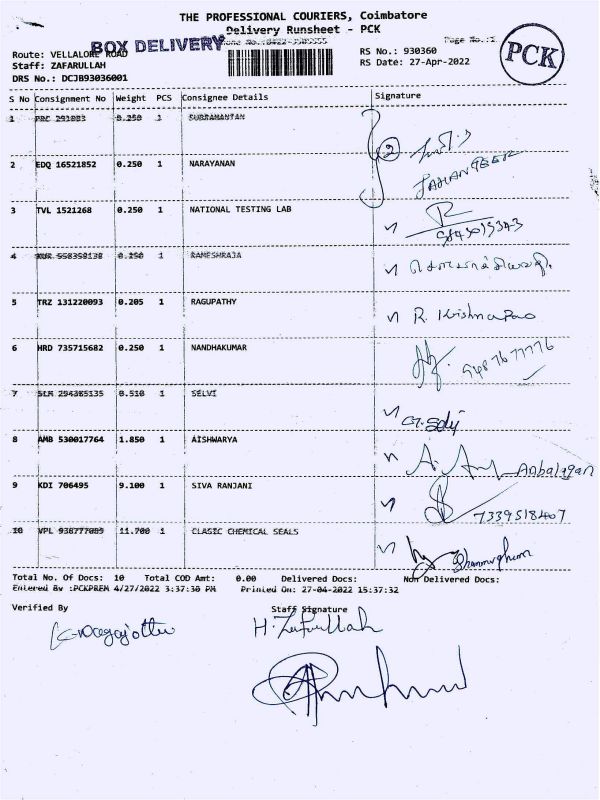 THE PROFESSIONAL COURIERS, Coimbatore
Delivery Runsheet - PCK
BOX DELIVERY
Page No.:1
PCK
Route: VELLALORE ROAD
RS No.: 930360
Staff: ZAFARULLAH
RS Date: 27-Apr-2022
DRS No.: DCJB93036001
S No Consignment No Weight PCS Consignee Details Signature
1 PRC 0.250 1 SUBRAMANIAN
2
JAHANGEER
2 EDQ 16521852 0.250 1 NARAYANAN
3 TVL 1521268 0.250 1 NATIONAL TESTING LAB
4 0.250 1 RAMESHRAJA
5 TRZ 131220093 0.205 1 RAGUPATHY R. Krishna Rao
6 HRD 735715682 0.250 1 NANDHAKUMAR
7 SLM 294385135 0.510 1 SELVI
8 AMB 530017764 1.850 1 AISHWARYA Anbalagan
9 KDI 706495 9.100 1 SIVA RANJANI
7339518407
10 VPL 11.700 1 CLASIC CHEMICAL SEALS Shanmugham
Total No. Of Docs: 10 Total COD Amt: 0.00 Delivered Docs: Non Delivered Docs:
Entered By :PCKPREM 4/27/2022 3:37:30 PM Printed On: 27-04-2022 15:37:32
Verified By Staff Signature
H. Zafarullah